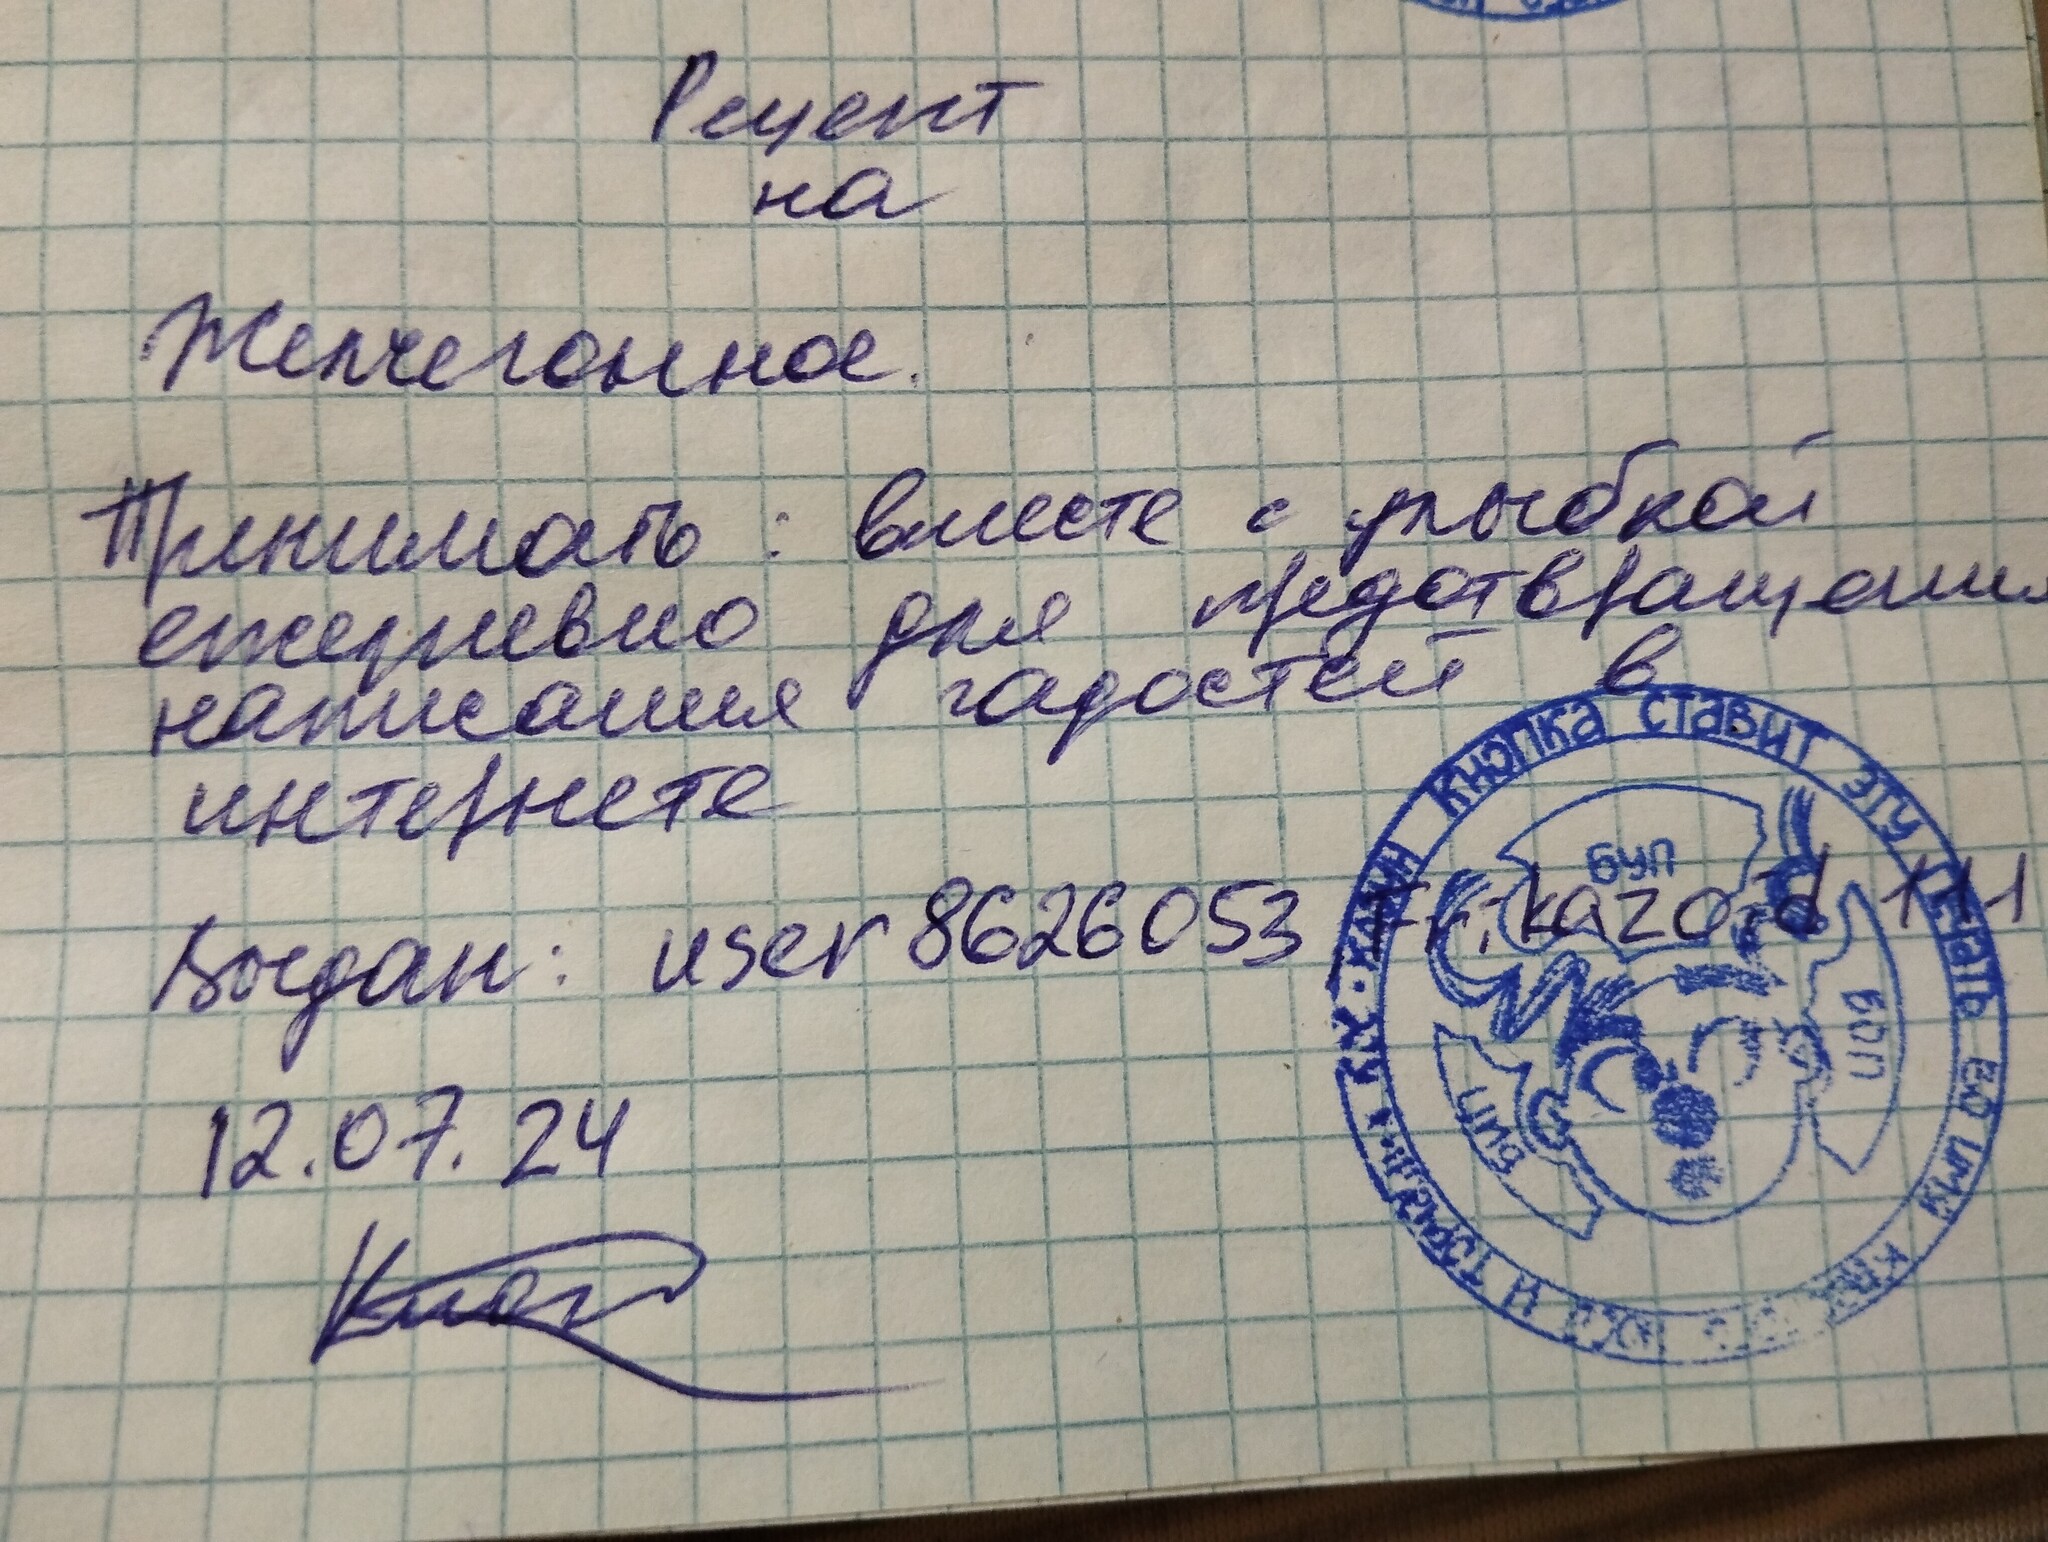 Рецепт
на
Желчегонное.
Принимать: вместе с улыбкой
ежедневно для предотвращения
написания гадостей в
интернете
Богдан: user8626053
12.07.24
КЛОУН КНОПКА СТАВИТ ЭТУ ПЕЧАТЬ ЕЁ ИМЯ
БУП
БОП
БИП